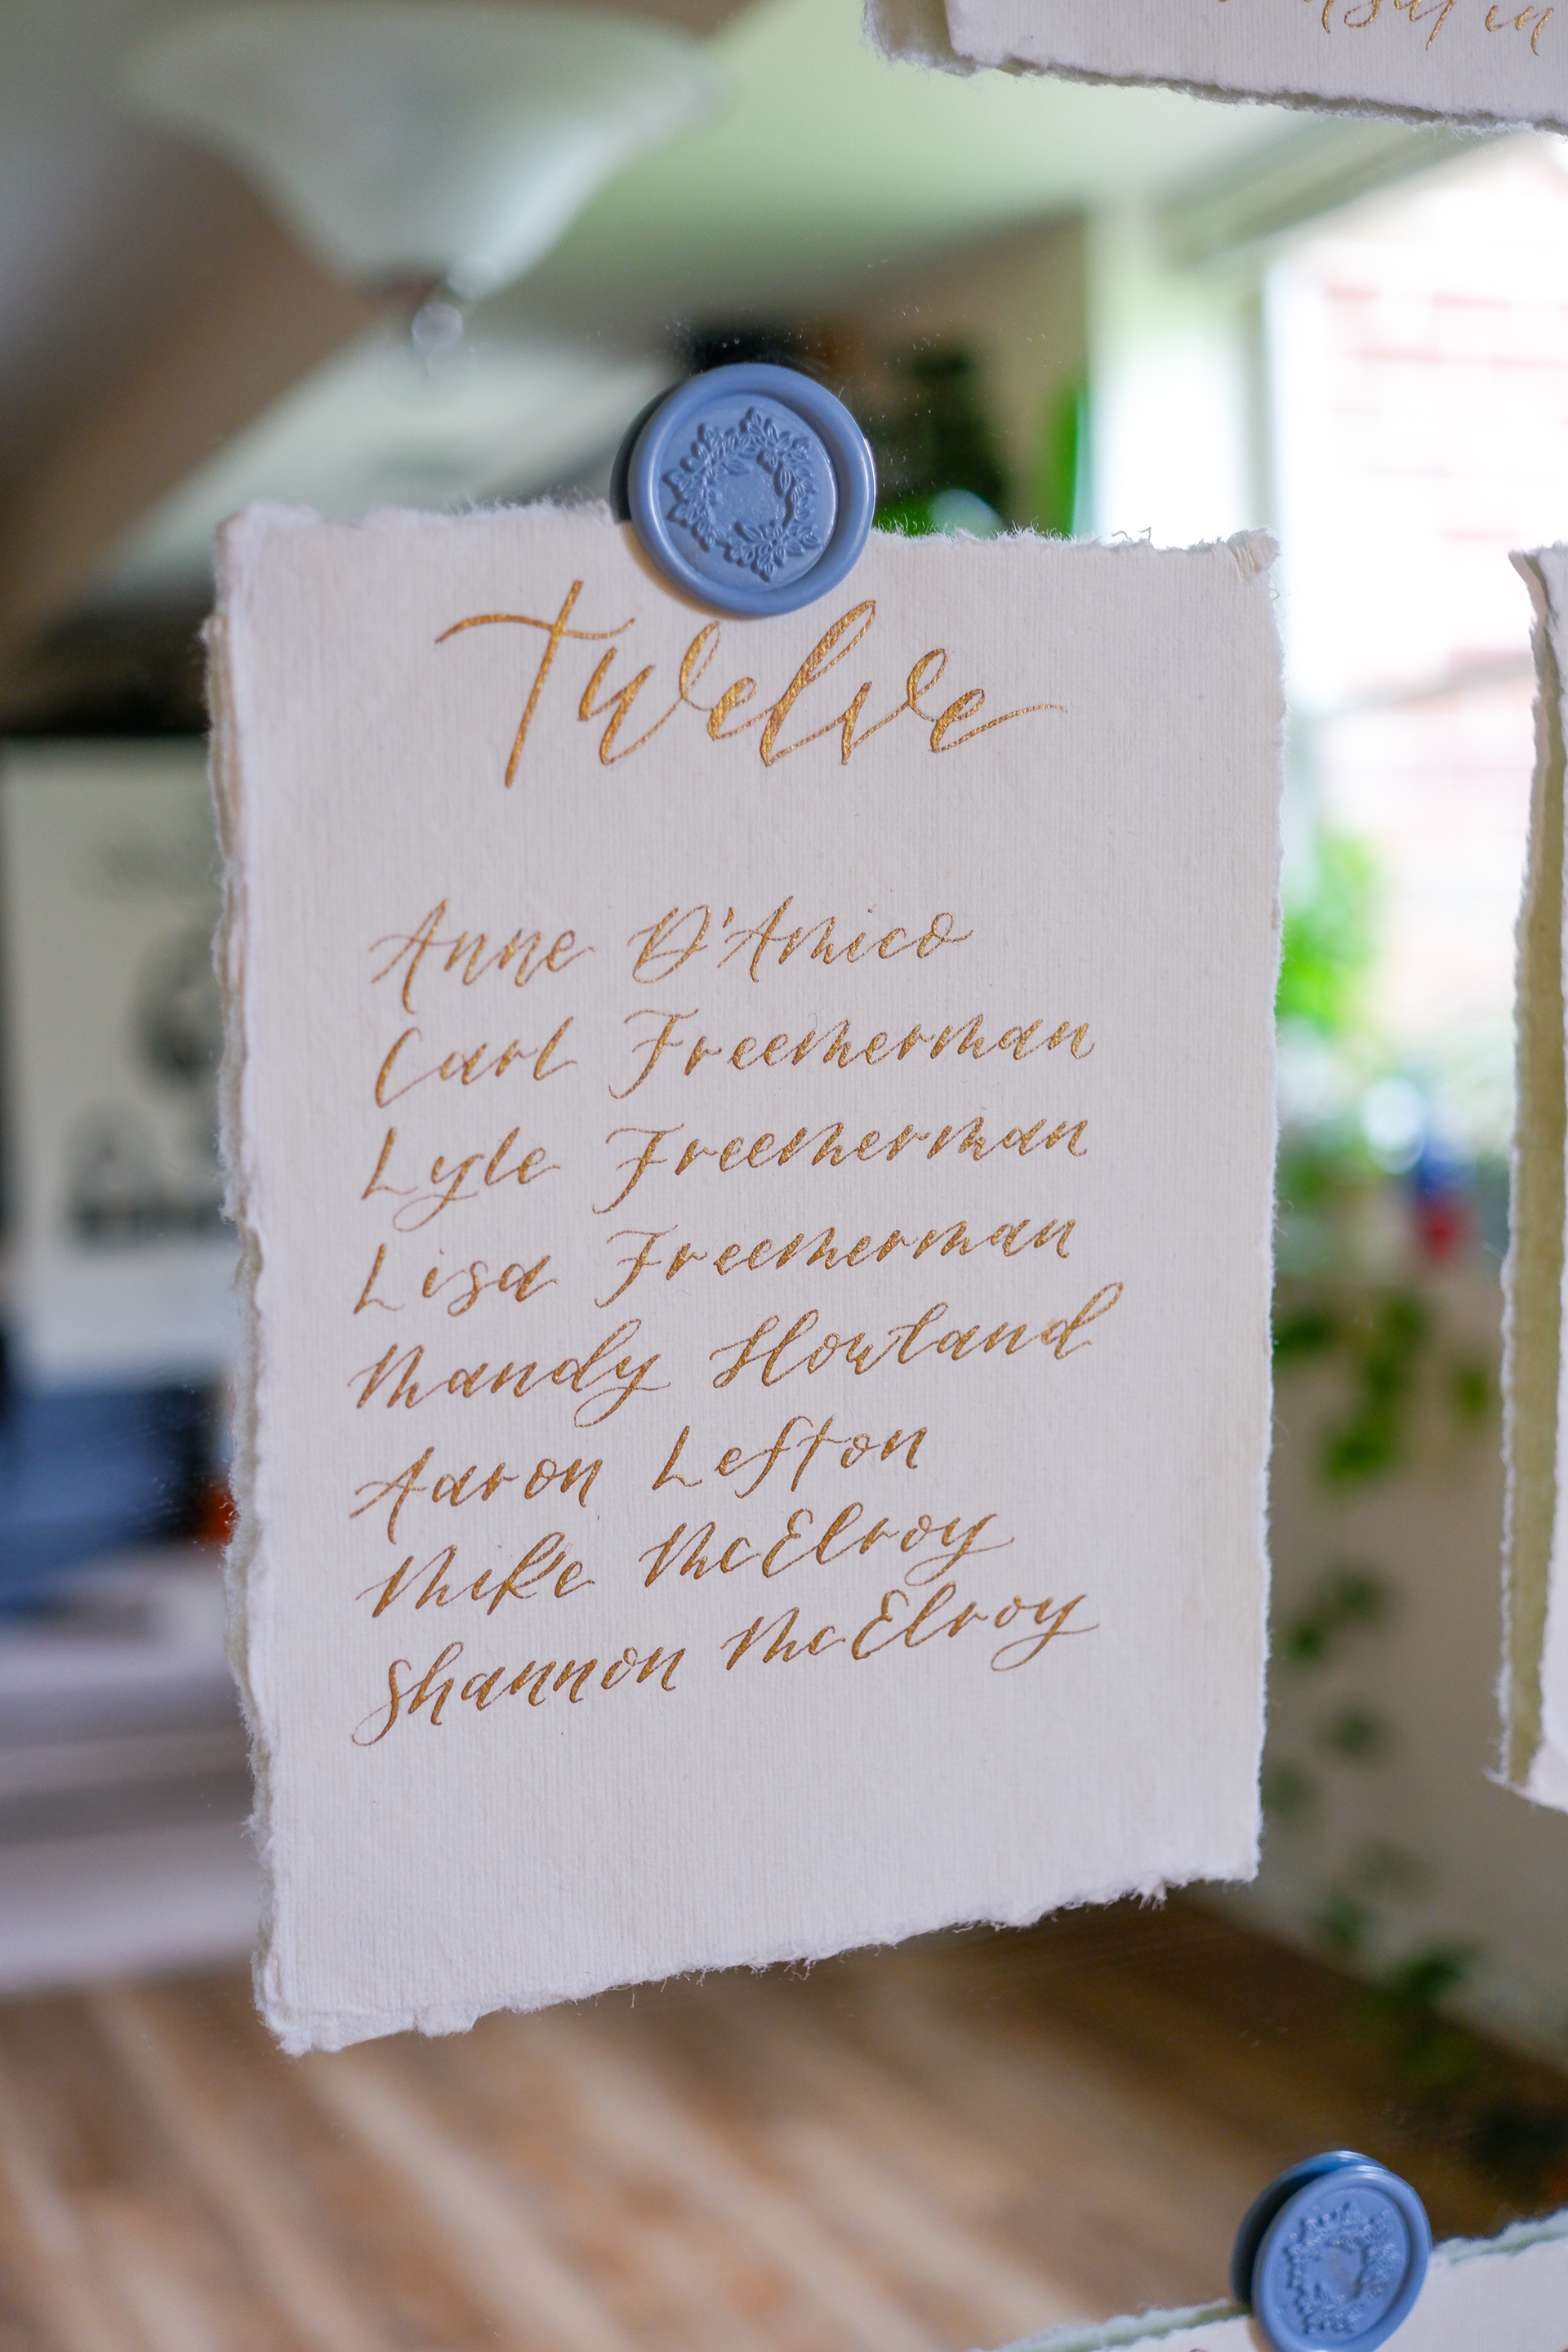 Twelve
Anne D'Amico
Carl Freemerman
Lyle Freemerman
Lisa Freemerman
Mandy Howland
Aaron Lefton
Mike McElroy
Shannon McElroy